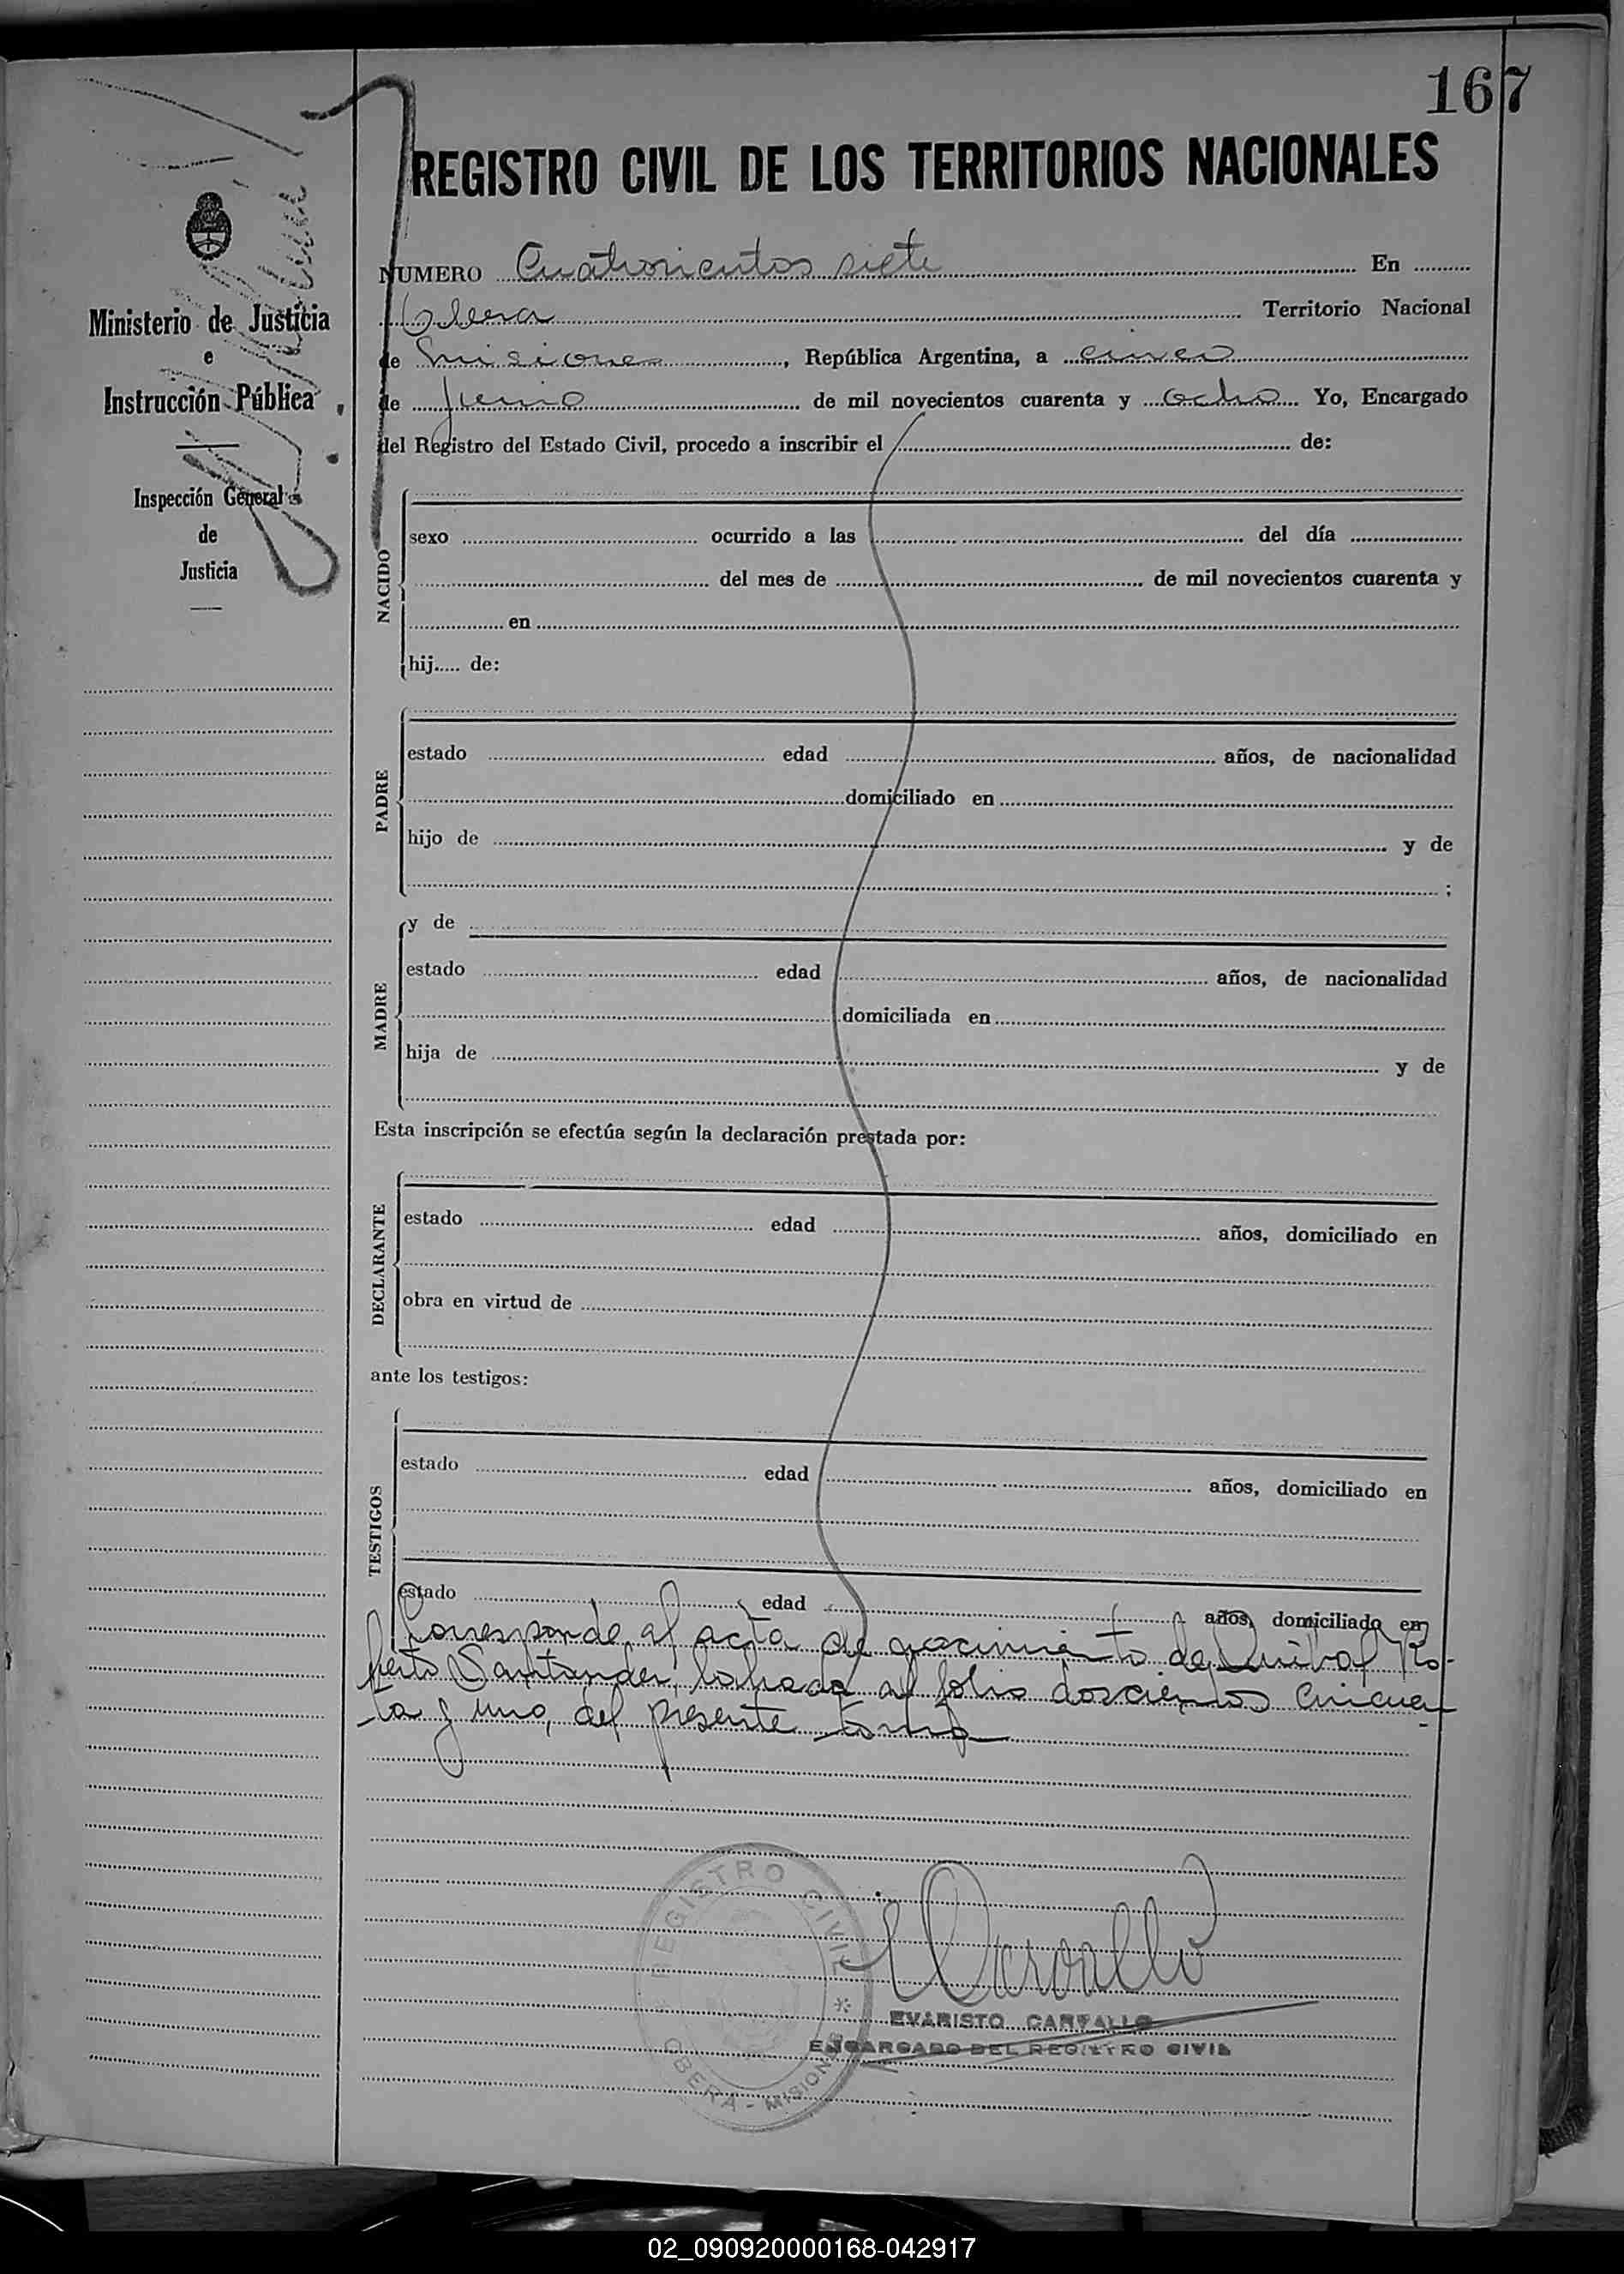 167
REGISTRO CIVIL DE LOS TERRITORIOS NACIONALES
Ministerio de Justicia
e
Instrucción Pública
Inspección General
de
Justicia
NUMERO Cuatrocientos siete En
Obera Territorio Nacional
de Misiones, República Argentina, a cinco
de Junio de mil novecientos cuarenta y ocho Yo, Encargado
del Registro del Estado Civil, procedo a inscribir el de:
NACIDO
sexo ocurrido a las del día
del mes de de mil novecientos cuarenta y
en
hij..... de:
PADRE
estado edad años, de nacionalidad
domiciliado en
hijo de y de
;
MADRE
y de
estado edad años, de nacionalidad
domiciliada en
hija de y de
Esta inscripción se efectúa según la declaración prestada por:
DECLARANTE
estado edad años, domiciliado en
obra en virtud de
ante los testigos:
TESTIGOS
estado edad años, domiciliado en
estado edad años, domiciliado en
Corresponde al acta de nacimiento de Ro-
berto Santander, labrada al folio doscientos cincuen
-ta y uno, del presente tomo
REGISTRO CIVIL
OBERA - MISIONES
ECarvallo
EVARISTO CARVALLO
ENCARGADO DEL REGISTRO CIVIL
02_090920000168-042917